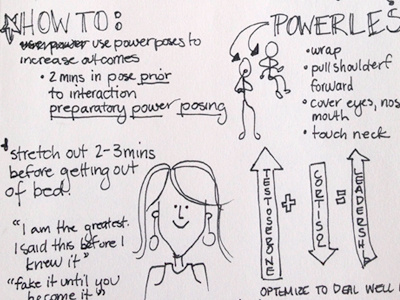 HOW TO:
use power use power poses to
increase outcomes
• 2 mins in pose prior
to interaction
preparatory power posing
stretch out 2-3 mins
before getting out
of bed.
"I am the greatest.
I said this before I
knew it"
"fake it until you
become it"
POWERLES
• wrap
• pull shoulder
forward
• cover eyes, nos
mouth
• touch neck
TESTOSERONE
+
CORTISOL
=
LEADERSHIP
OPTIMIZE TO DEAL WELL